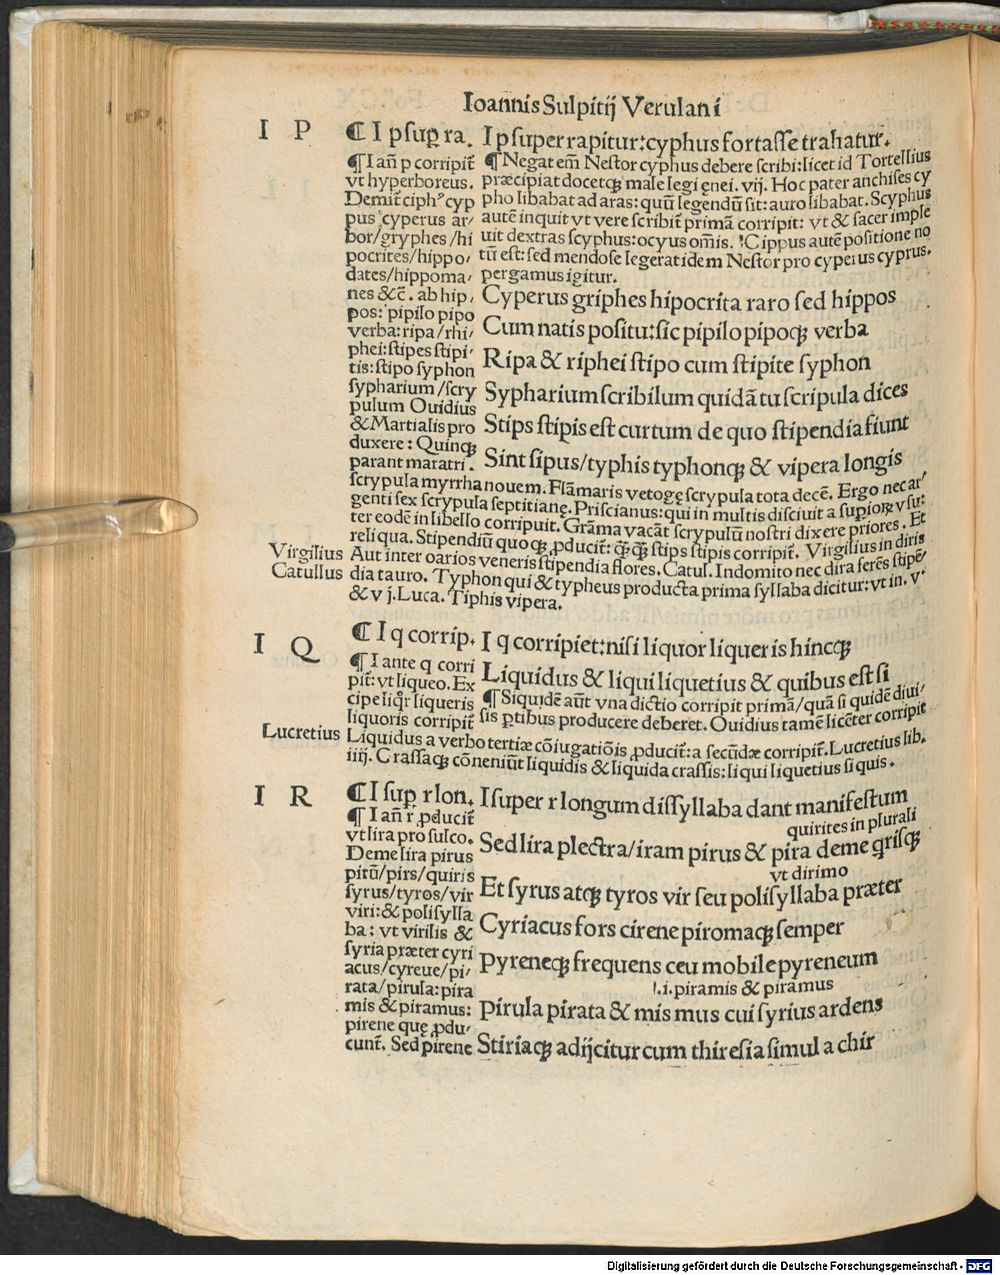 Ioannis Sulpitij Verulani
I P
¶ I p sup̱ ra. I p super rapitur: cyphus fortasse trahatur.
¶ I añ p corripit̃
vt hyperboreus.
Demit̃ ciphꝰ cyp
pus cyperus ar/
bor/gryphes/hi
pocrites/hippo/
dates/hippoma/
nes &c̃. ab hip/
pos: pipilo pipo
verba: ripa/rhi/
phei: stipes stipi/
tis: stipo syphon
sypharium/scry
pulum Ouidius
& Martialis pro
duxere: Quinqꝫ
parant maratri.
¶ Negat em̃ Nestor cyphus debere scribi: licet id Tortellius
præcipiat docetqꝫ male legi ęnei. vij. Hoc pater anchises cy
pho libabat ad aras: quũ legendũ sit: auro libabat. Scyphus
autẽ inquit vt vere scribit̃ primã corripit: vt & sacer imple
uit dextras scyphus: ocyus om̃is. Cippus autẽ positione no
tũ est: sed mendose legerat idem Nestor pro cyperus cyprus.
pergamus igitur.
Cyperus griphes hipocrita raro sed hippos
Cum natis positu: sic pipilo pipoqꝫ verba
Ripa & riphei stipo cum stipite syphon
Sypharium scribilum quidã tu scripula dices
Stips stipis est curtum de quo stipendia fiunt
Sint sipus/typhis typhonqꝫ & vipera longis
scrypula myrrha nouem. Flãmaris vetogę scrypula tota decẽ. Ergo nec ar/
genti sex scrypula septitianę. Priscianus: qui in multis disciuit a sup̱ioꝝ vsu:
ter eodẽ in libello corripuit. Grãma vacãt scrypulũ nostri dixere priores. Et
reliqua. Stipendiũ quoqꝫ ꝓducit̃: q̃qꝫ stips stipis corripit̃. Virgilius in diris
Virgilius Aut inter oarios veneris stipendia flores. Catul. Indomito nec dira ferẽs stipẽ/
Catullus dia tauro. Typhon qui & typheus producta prima syllaba dicitur: vt in. v.
& vj. Luca. Tiphis vipera.
I Q
¶ I q corrip. I q corripiet: nisi liquor liqueris hincqꝫ
¶ I ante q corri
pit̃: vt liqueo. Ex
cipe liq̃r liqueris
liquoris corripit̃
Liquidus & liqui liquetius & quibus est si
¶ Siquidẽ aũt vna dictio corripit primã/quã si quidẽ diui/
sis ꝑtibus producere deberet. Ouidius tamẽ licẽter corripit
Lucretius Liquidus a verbo tertiæ cõiugatiõis ꝓducit̃: a secũdæ corripit̃. Lucretius lib.
iiij. Crassaqꝫ cõneniũt liquidis & liquida crassis: liqui liquetius siquis.
I R
¶ I sup̱ r lon. I super r longum dissyllaba dant manifestum
¶ I añ r ꝓducit̃
vt lira pro sulco.
Deme lira pirus
pitũ/pirs/quiris
syrus/tyros/vir
viri: & polisylla
ba: vt virilis &
syria præter cyri
acus/cyreue/pi/
rata/pirula: pira
mis & piramus:
pirene quę ꝓdu/
cunt̃. Sed pirene
quirites in plurali
Sed lira plectra/iram pirus & pira deme q̃risqꝫ
vt dirimo
Et syrus atqꝫ tyros vir seu polisyllaba præter
Cyriacus fors cirene piromaqꝫ semper
Pyreneqꝫ frequens ceu mobile pyreneum
.i. piramis & piramus
Pirula pirata & mis mus cui syrius ardens
Stiriaqꝫ adijcitur cum thiresia simul a chir
Digitalisierung gefördert durch die Deutsche Forschungsgemeinschaft - DFG